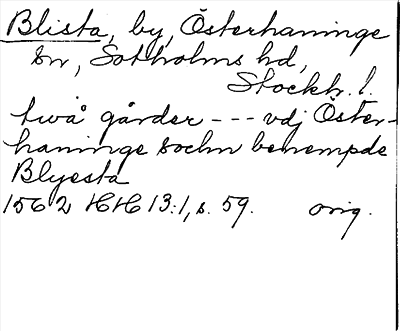 Blista, by, Österhaninge
sn, Sotholms hd,
Stockh. l.
twå gårder --- vdj Öster-
haninge sochn benempde
Blyesta
1562 HH 13:1, s. 59. orig.